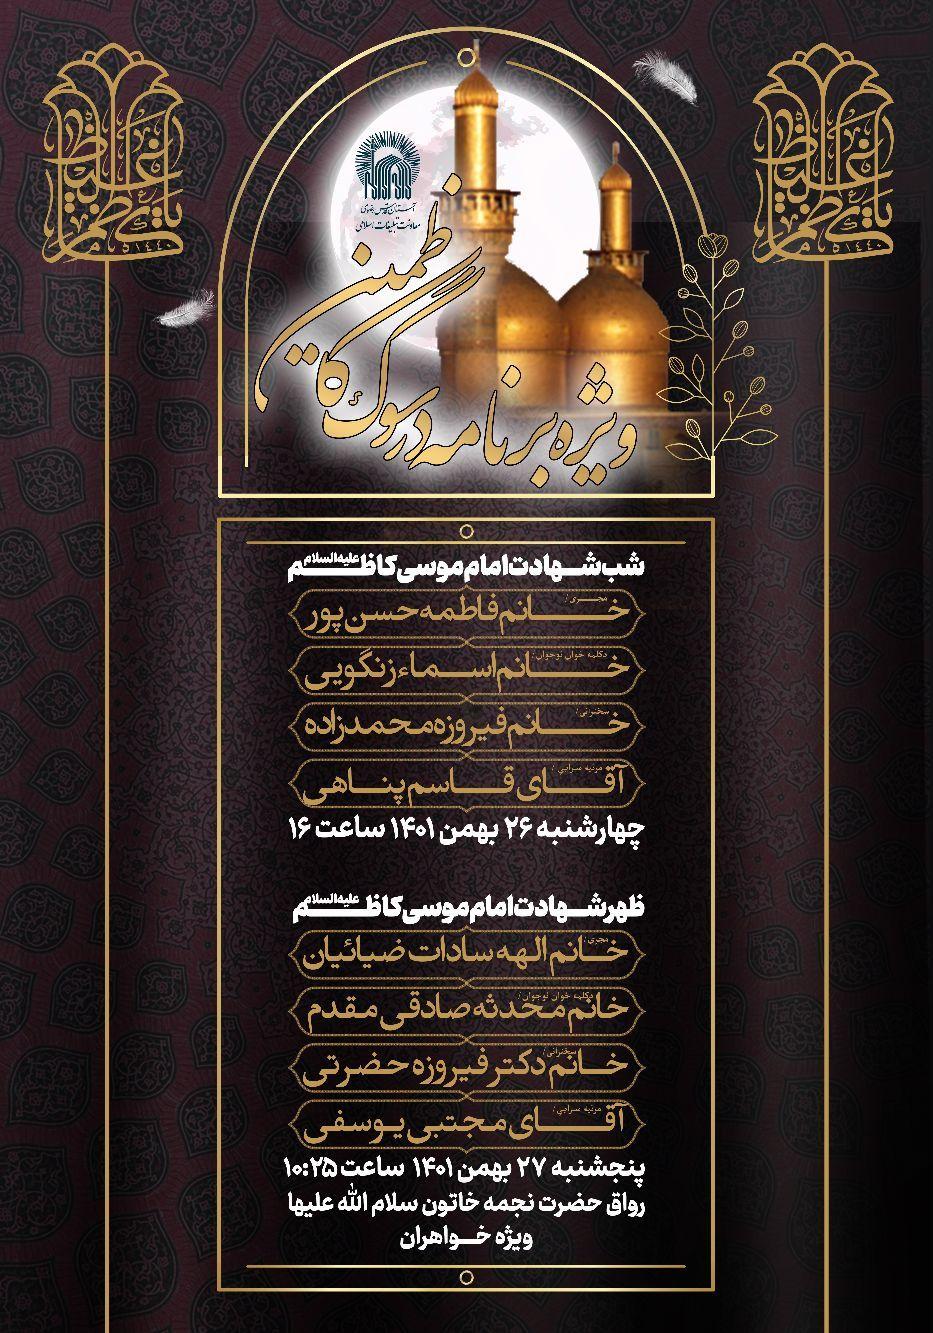 آستان قدس رضوی
معاونت تبلیغات اسلامی
ویژه برنامه در سوگ کاظمین
شب شهادت امام موسی کاظم علیه‌السلام
مجری:
خانم فاطمه حسن پور
دکلمه خوان نوجوان:
خانم اسماء زنگویی
سخنرانی:
خانم فیروزه محمدزاده
مرثیه سرایی:
آقای قاسم پناهی
چهارشنبه ۲۶ بهمن ۱۴۰۱ ساعت ۱۶
ظهر شهادت امام موسی کاظم علیه‌السلام
مجری:
خانم الهه سادات ضیائیان
دکلمه خوان نوجوان:
خانم محدثه صادقی مقدم
سخنرانی:
خانم دکتر فیروزه حضرتی
مرثیه سرایی:
آقای مجتبی یوسفی
پنجشنبه ۲۷ بهمن ۱۴۰۱ ساعت ۱۰:۲۵
رواق حضرت نجمه خاتون سلام الله علیها
ویژه خواهران